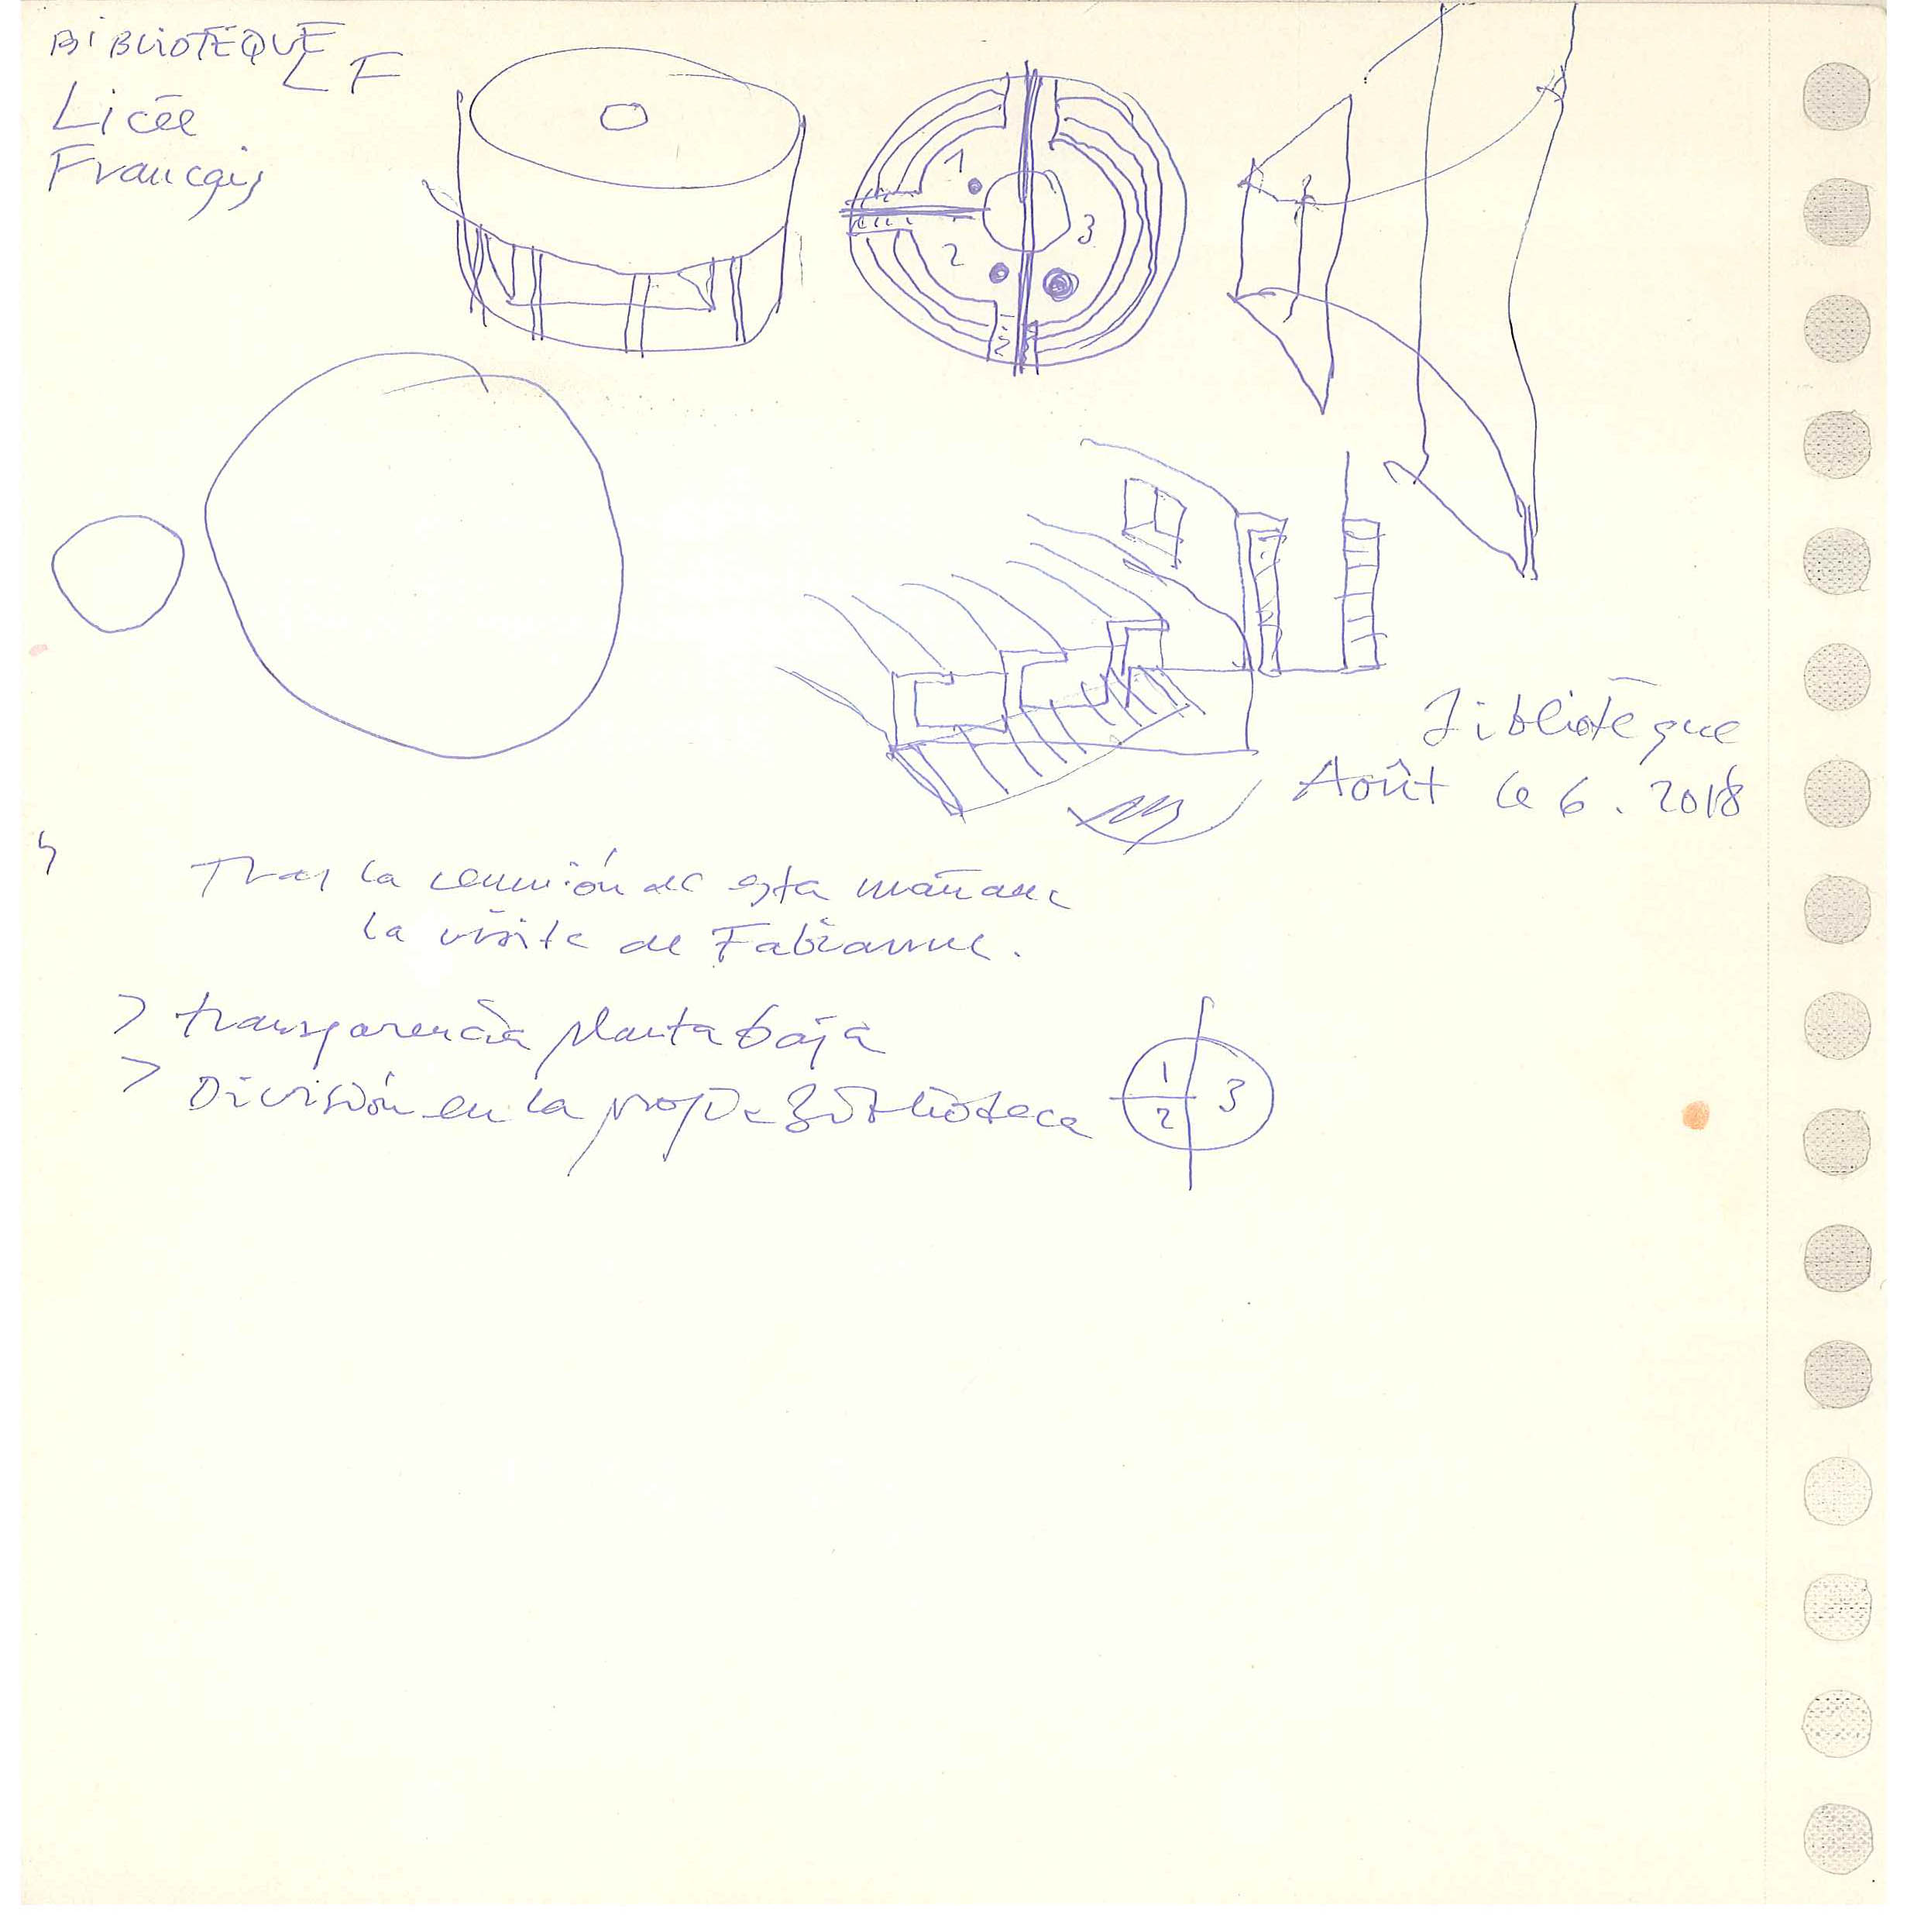 BIBLIOTÈQUE
LF
Licée
Français
1
2
3
Bibliotèque
Août le 6. 2018
Tras la reunión de esta mañana
la visite de Fabianne.
> transparencia planta baja
> División en la propia Biblioteca
1
2
3